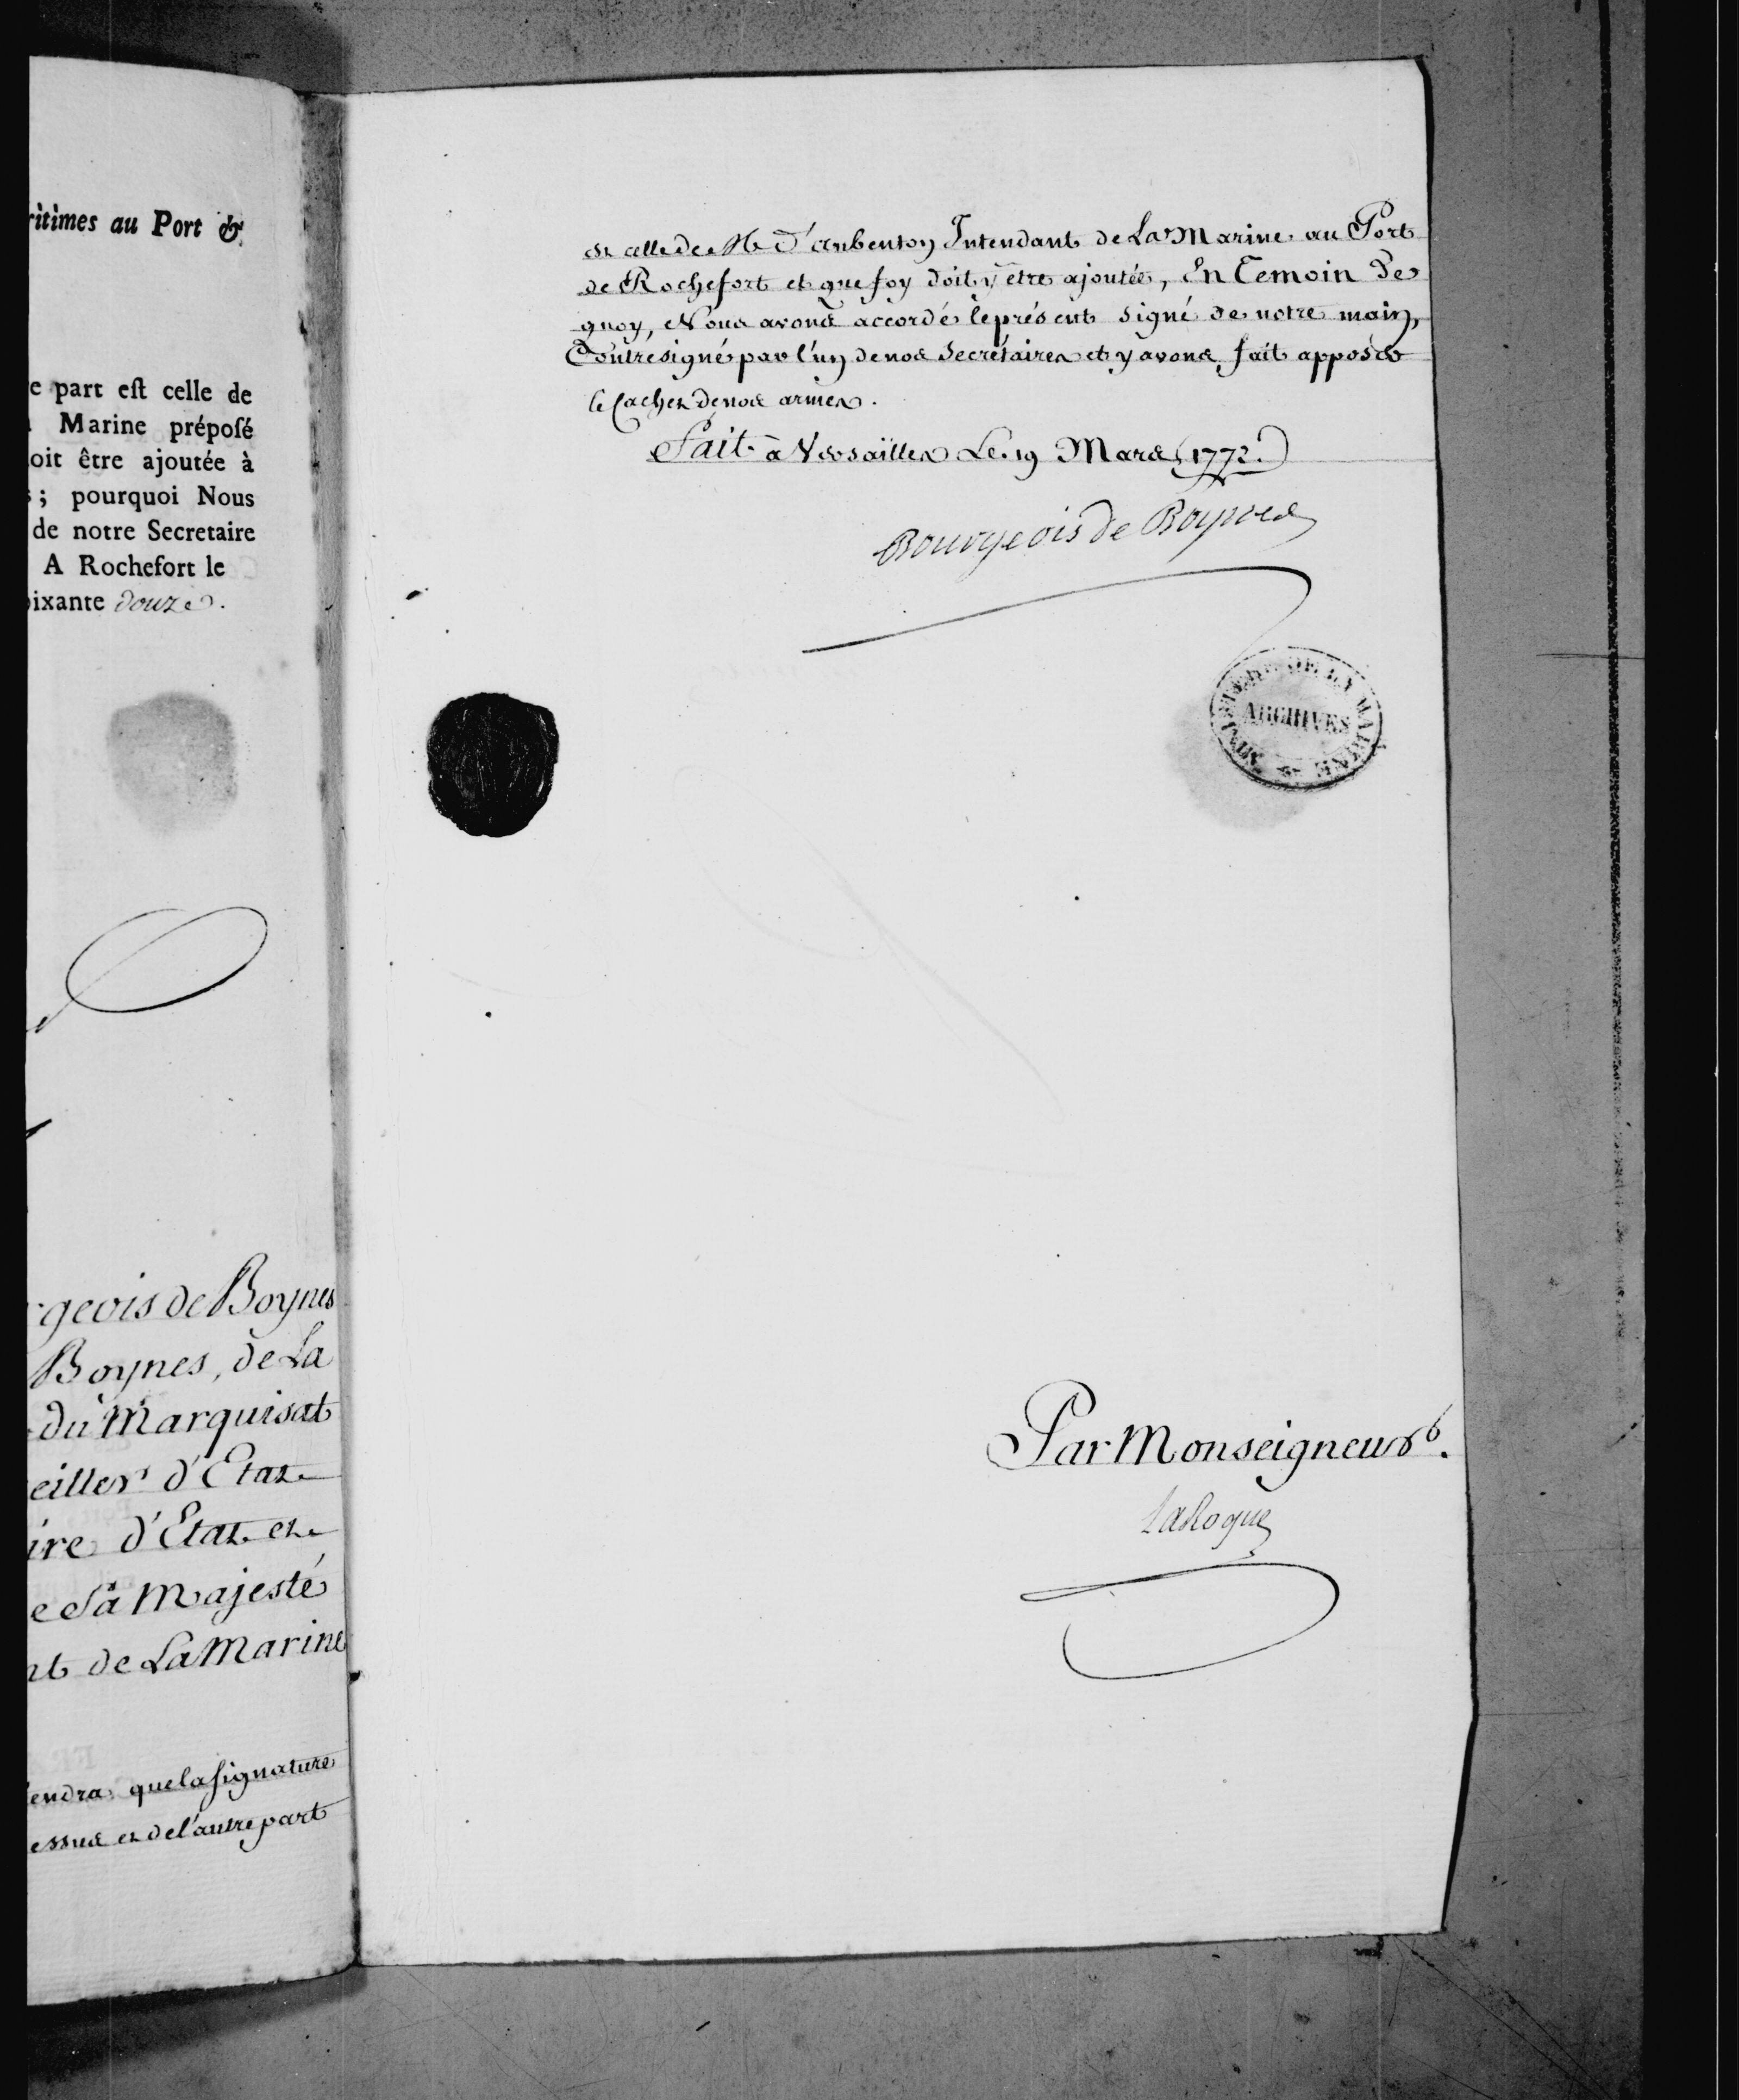 ritimes au Port &
e part est celle de
Marine préposé
oit être ajoutée à
; pourquoi Nous
de notre Secretaire
A Rochefort le
oixante douze.
geois de Boynes
Boynes, de La
du Marquisat
eiller d'Etat
ire d'Etat et
e Sa Majesté
nt de La Marine
endra que la signature
essus et de l'autre part
est celle de Mr. D'aubenton Intendant de La Marine au Port
de Rochefort et que foy doit y être ajoutée, En Temoin De
quoy, Nous avons accordé le présent signé de notre main,
Contresigné par l'un de nos Secrétaires et y avons fait apposer
le Cachet de nos armes.
Fait à Versailles Le 19 Mars 1772.
Bourgeois de Boynes
MINISTERE DE LA MARINE
ARCHIVES
Par Monseigneur.
LaRoque